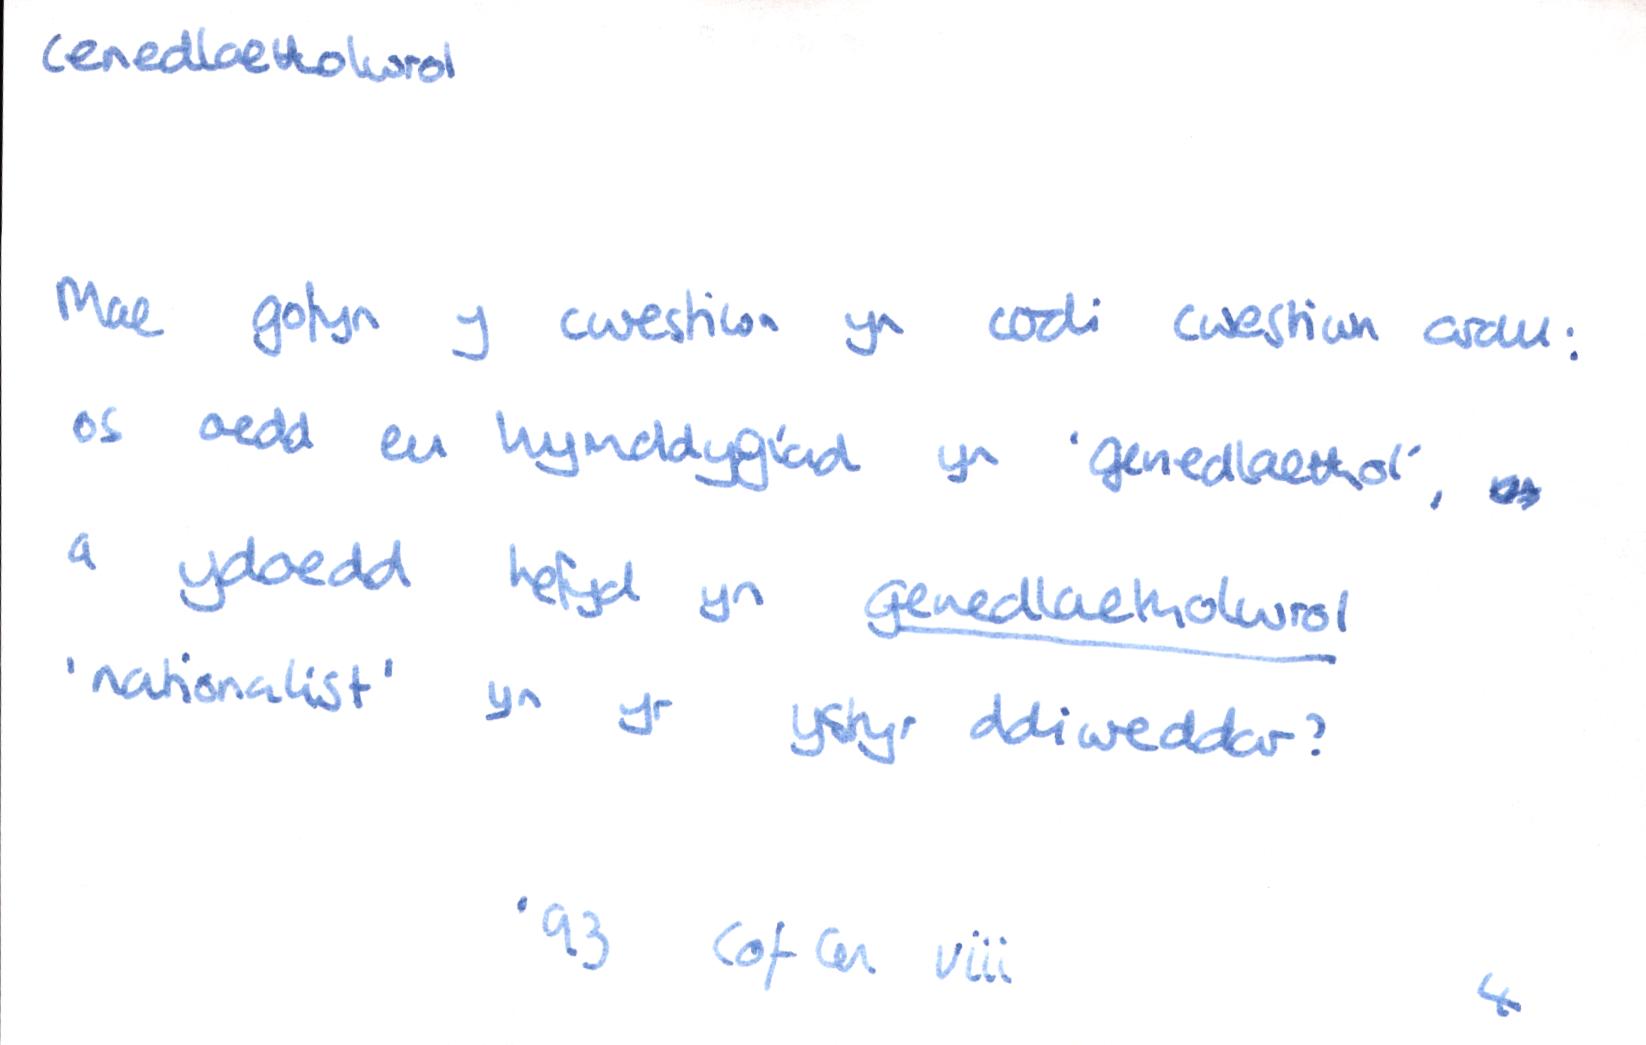 cenedlaetholwrol
Mae gofyn y cwestiwn yn codi cwestiwn arall:
os oedd eu hymddygiad yn 'genedlaethol',
a ydoedd hefyd yn genedlaetholwrol
'nationalist' yn yr ystyr ddiweddar?
'93 Cof Cen viii 4